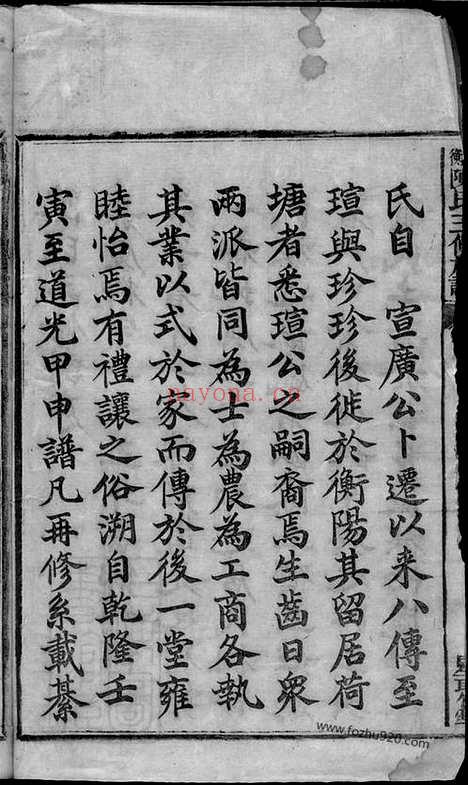 氏自　宣廣公卜遷以来八傳至
瑄與珍珍後徙於衡陽其留居荷
塘者悉瑄公之嗣裔焉生齒日衆
兩派皆同為士為農為工商各執
其業以式於家而傳於後一堂雍
睦怡焉有禮讓之俗溯自乾隆壬
寅至道光甲申譜凡再修系載綦
nayona.cn
www.fozhu920.com